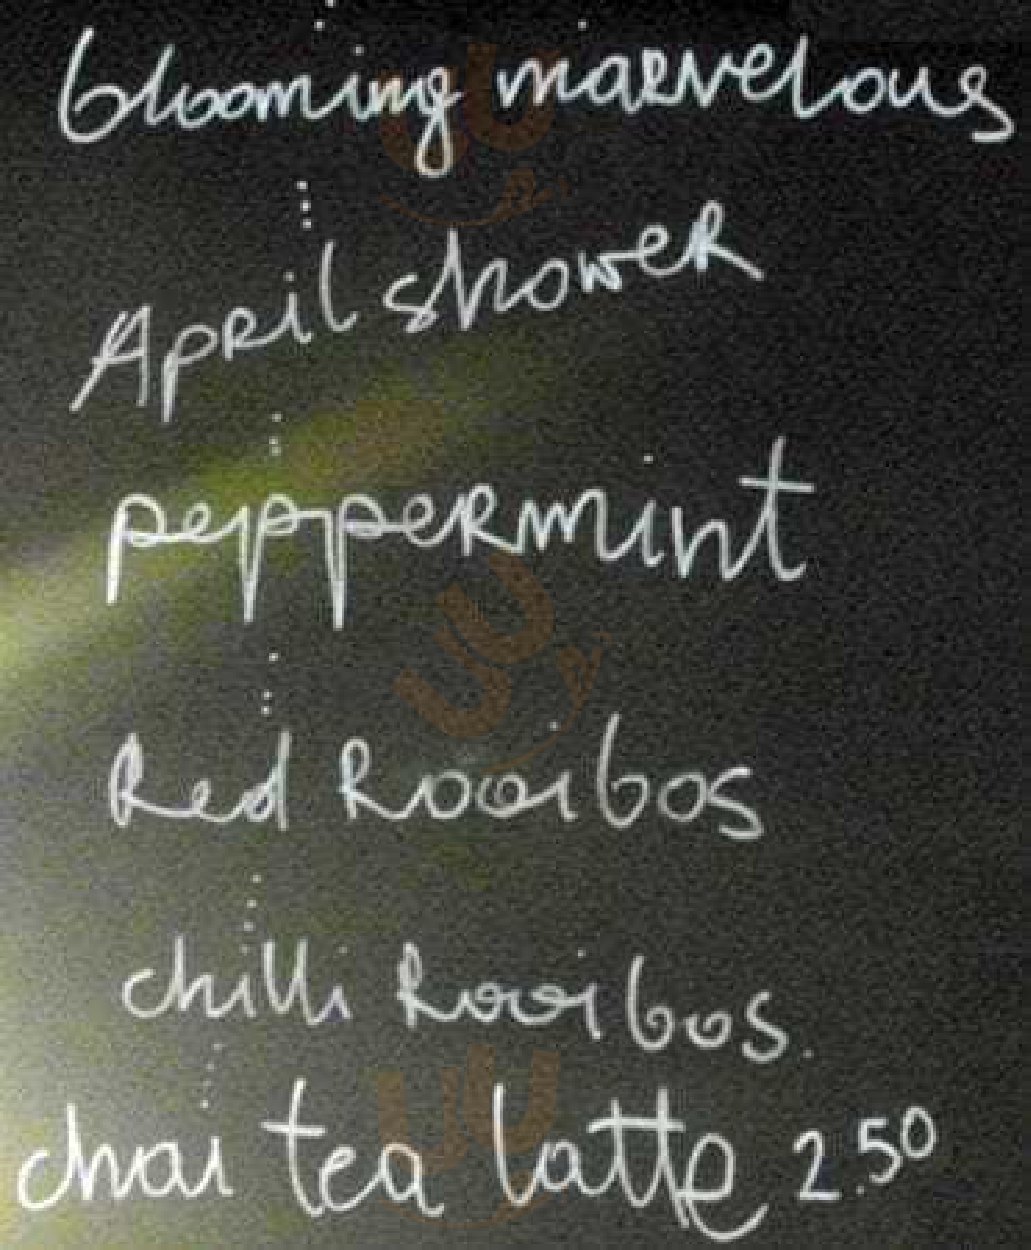 blooming marvelous
April shower
peppermint
Red Rooibos
chilli Rooibos.
chai tea latte 2.50